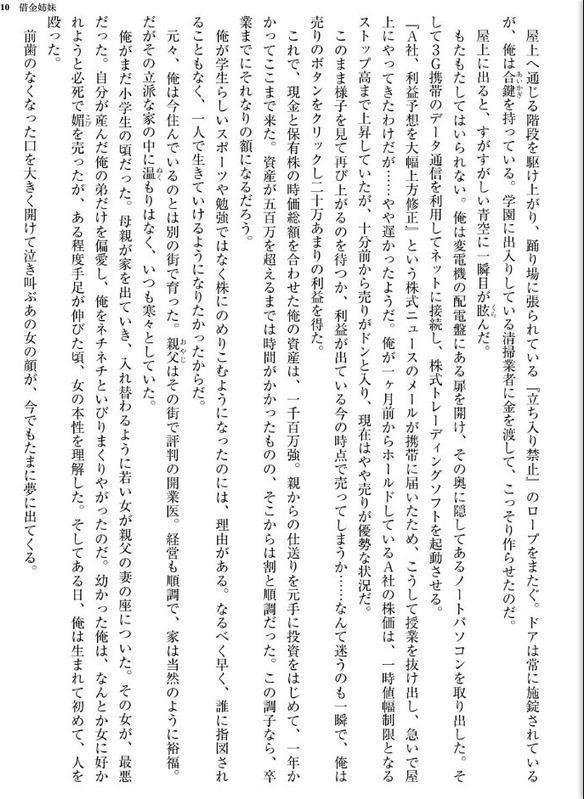 10 借金姉妹
屋上へ通じる階段を駆け上がり、踊り場に張られている『立ち入り禁止』のロープをまたぐ。ドアは常に施錠されている
が、俺は合鍵を持っている。学園に出入りしている清掃業者に金を渡して、こっそり作らせたのだ。
屋上に出ると、すがすがしい青空に一瞬目が眩んだ。
もたもたしてはいられない。俺は変電機の配電盤にある扉を開け、その奥に隠してあるノートパソコンを取り出した。そ
して3G携帯のデータ通信を利用してネットに接続し、株式トレーディングソフトを起動させる。
『A社、利益予想を大幅上方修正』という株式ニュースのメールが携帯に届いたため、こうして授業を抜け出し、急いで屋
上にやってきたわけだが……やや遅かったようだ。俺が一ヶ月前からホールドしているA社の株価は、一時値幅制限となる
ストップ高まで上昇していたが、十分前から売りがドンと入り、現在はやや売りが優勢な状況だ。
このまま様子を見て再び上がるのを待つか、利益が出ている今の時点で売ってしまうか……なんて迷うのも一瞬で、俺は
売りのボタンをクリックし二十万あまりの利益を得た。
これで、現金と保有株の時価総額を合わせた俺の資産は、一千百万強。親からの仕送りを元手に投資をはじめて、一年か
かってここまで来た。資産が五百万を超えるまでは時間がかかったものの、そこからは割と順調だった。この調子なら、卒
業までにそれなりの額になるだろう。
俺が学生らしいスポーツや勉強ではなく株にのめりこむようになったのには、理由がある。なるべく早く、誰に指図され
ることもなく、一人で生きていけるようになりたかったからだ。
元々、俺は今住んでいるのとは別の街で育った。親父はその街で評判の開業医。経営も順調で、家は当然のように裕福。
だがその立派な家の中に温もりはなく、いつも寒々としていた。
俺がまだ小学生の頃だった。母親が家を出ていき、入れ替わるように若い女が親父の妻の座についた。その女が、最悪
だった。自分が産んだ俺の弟だけを偏愛し、俺をネチネチといびりまくりやがったのだ。幼かった俺は、なんとか女に好か
れようと必死で媚を売ったが、ある程度手足が伸びた頃、女の本性を理解した。そしてある日、俺は生まれて初めて、人を
殴った。
前歯のなくなった口を大きく開けて泣き叫ぶあの女の顔が、今でもたまに夢に出てくる。